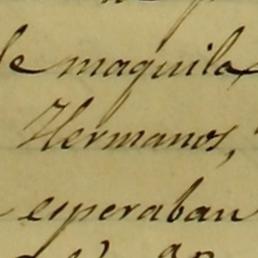 de maquila
Hermanos,
esperaban